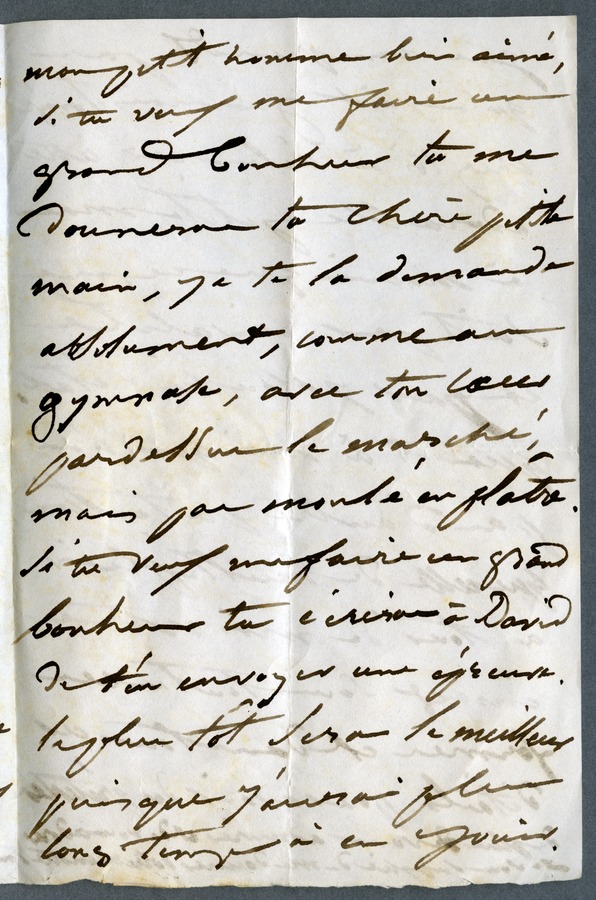 mon petit homme bien aimé,
si tu veux me faire un
grand bonheur tu me
donneras ta chère petite
main, je te la demande
absolument, comme au
gymnase, avec ton cœur
pardessus le marché,
mais pas moulé en plâtre.
Si tu veux me faire un grand
bonheur tu écriras à David
de t'en envoyer une épreuve.
le plus tôt sera le meilleur
puisque j'aurai plus
long temps à en jouir.